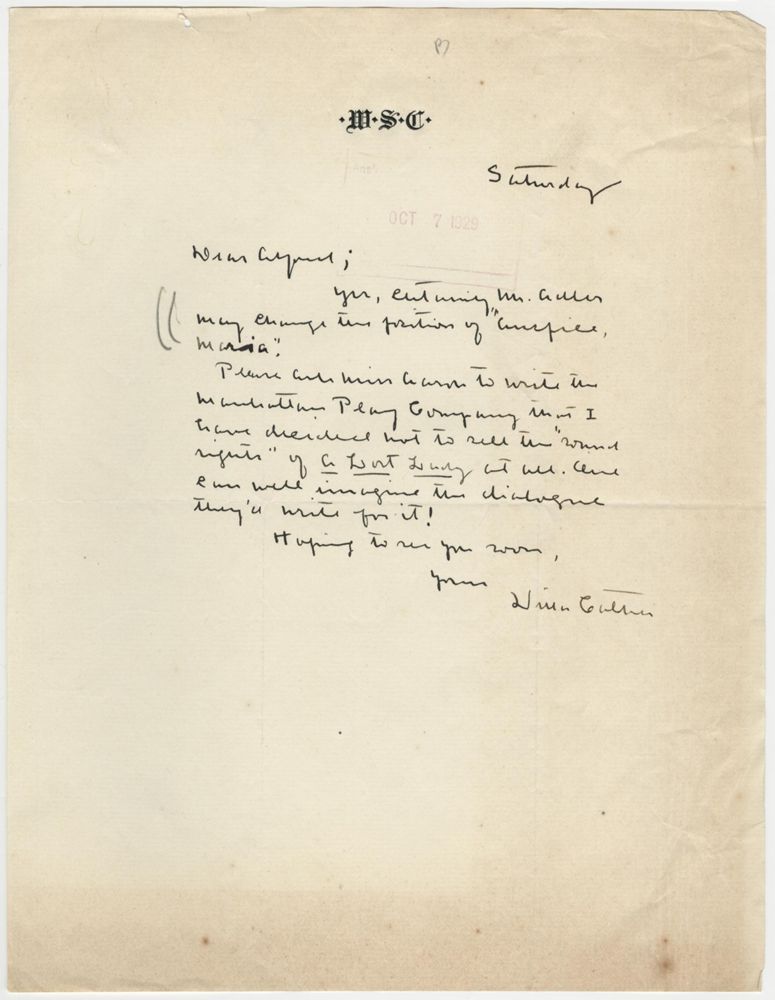 ·W·S·C·
Saturday
OCT 7 1929
Dear Alfred;
Yes, certainly Mr. Adler
may change the position of "Auspice,
Maria".
Please ask Miss Aaron to write the
Manhattan Play Company that I
have decided not to sell the "sound
rights" of A Lost Lady at all. One
can well imagine the dialogue
they'd write for it!
Hoping to see you soon,
Yours
Willa Cather